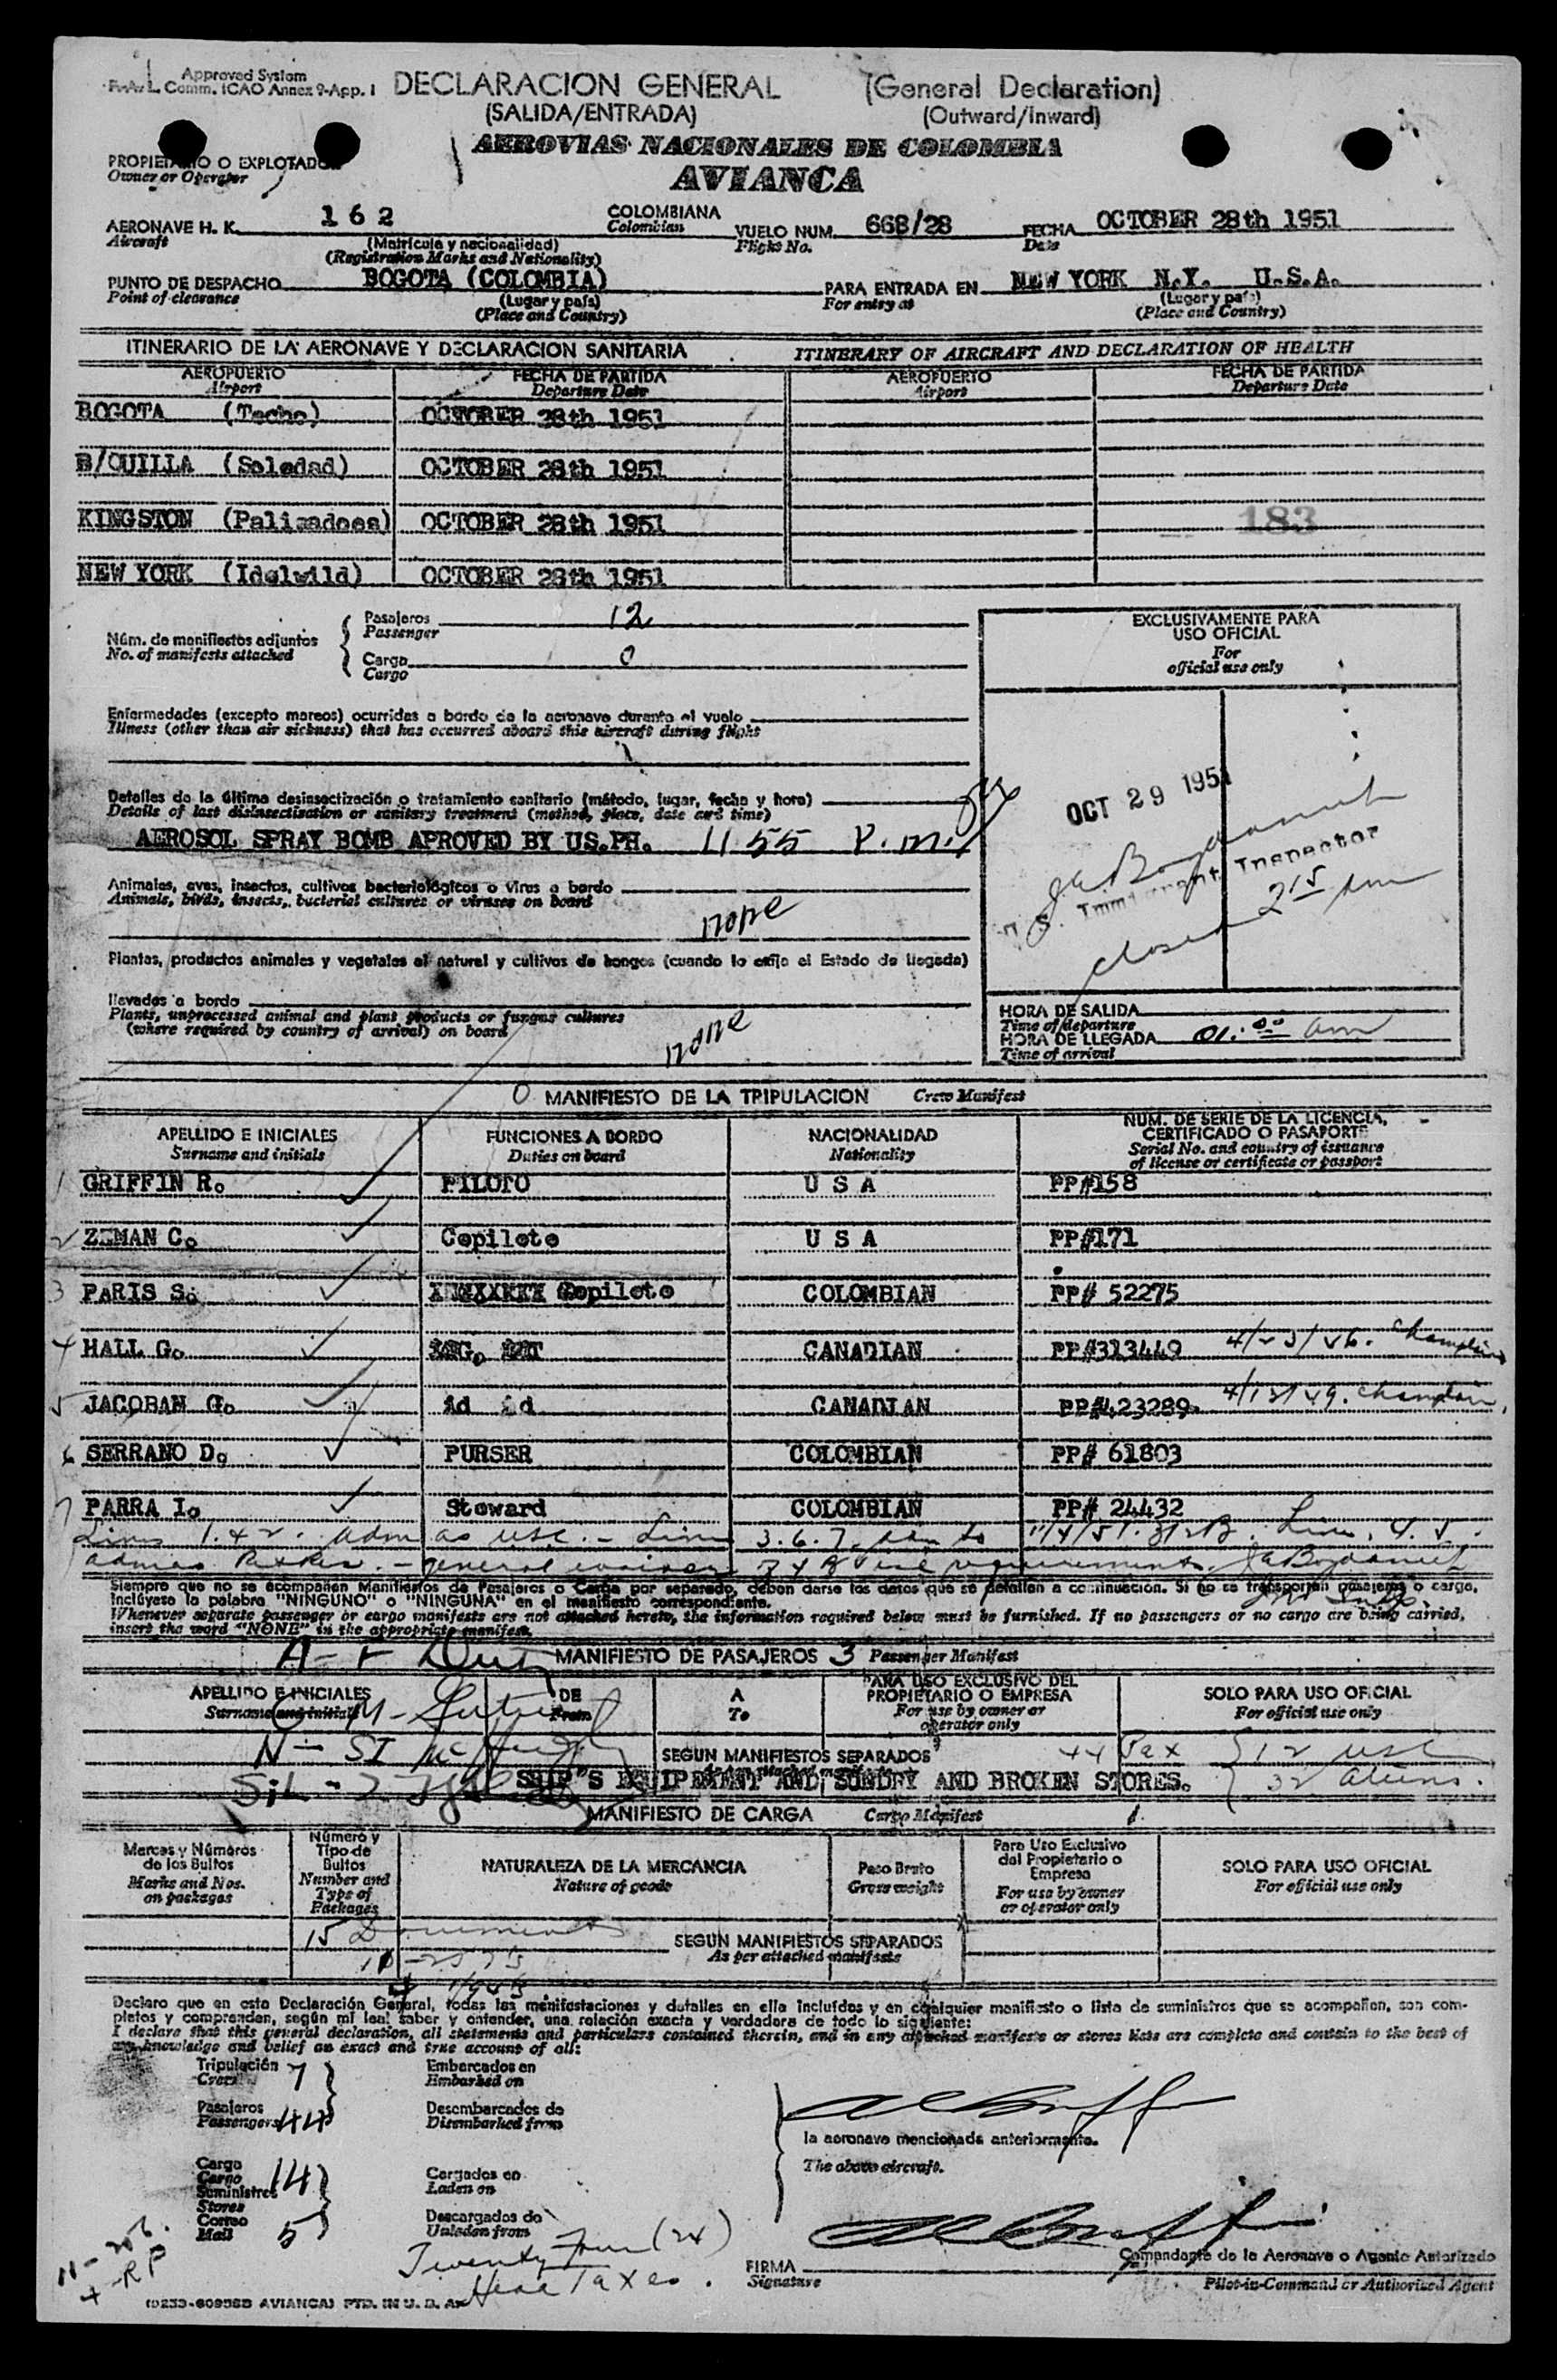 Approved System
Comm. ICAO Annex 9-App. 1
DECLARACION GENERAL (General Declaration)
(SALIDA/ENTRADA) (Outward/Inward)
AEROVIAS NACIONALES DE COLOMBIA
AVIANCA
PROPIETARIO O EXPLOTADOR
Owner or Operator
AERONAVE H. K. 162 COLOMBIANA VUELO NUM. 668/28 FECHA OCTOBER 28th 1951
Aircraft Colombian Flight No. Date
(Matrícula y nacionalidad)
(Registration Marks and Nationality)
PUNTO DE DESPACHO BOGOTA (COLOMBIA) PARA ENTRADA EN NEW YORK N.Y. U.S.A.
Point of clearance (Lugar y país) For entry at (Lugar y país)
(Place and Country) (Place and Country)
ITINERARIO DE LA AERONAVE Y DECLARACION SANITARIA ITINERARY OF AIRCRAFT AND DECLARATION OF HEALTH
AEROPUERTO FECHA DE PARTIDA AEROPUERTO FECHA DE PARTIDA
Airport Departure Date Airport Departure Date
BOGOTA (Techo) OCTOBER 28th 1951
B/QUILLA (Soledad) OCTOBER 28th 1951
KINGSTON (Palisadoes) OCTOBER 28th 1951 183
NEW YORK (Idelwild) OCTOBER 28th 1951
Núm. de manifiestos adjuntos
No. of manifests attached
Pasajeros 12
Passenger
Cargo 0
Cargo
EXCLUSIVAMENTE PARA
USO OFICIAL
For
official use only
Enfermedades (excepto mareos) ocurridas a bordo de la aeronave durante el vuelo
Illness (other than air sickness) that has occurred aboard this aircraft during flight
Detalles de la última desinsectización o tratamiento sanitario (método, lugar, fecha y hora)
Details of last disinsectisation or sanitary treatment (method, place, date and time)
AEROSOL SPRAY BOMB APROVED BY US.PH. 11 55 P.m.
OCT 29 1951
Immigrant Inspector
closed 2 15 am
Animales, aves, insectos, cultivos bacteriológicos o virus a bordo
Animals, birds, insects, bacterial cultures or viruses on board
none
Plantas, productos animales y vegetales al natural y cultivos de hongos (cuando lo exija el Estado de llegada)
llevados a bordo
Plants, unprocessed animal and plant products or fungus cultures
(where required by country of arrival) on board
none
HORA DE SALIDA
Time of departure
HORA DE LLEGADA 01:00 am
Time of arrival
0 MANIFIESTO DE LA TRIPULACION Crew Manifest
APELLIDO E INICIALES FUNCIONES A BORDO NACIONALIDAD NUM. DE SERIE DE LA LICENCIA, CERTIFICADO O PASAPORTE
Surname and initials Duties on board Nationality Serial No. and country of issuance of license or certificate or passport
1 GRIFFIN R. PILOTO U S A PP#158
2 ZEMAN C. Copiloto U S A PP#171
3 PARIS S. Copiloto COLOMBIAN PP# 52275
4 HALL G. CANADIAN PP#313449
5 JACOBAN G. id id CANADIAN PP#423289
6 SERRANO D. PURSER COLOMBIAN PP# 61803
7 PARRA I. Steward COLOMBIAN PP# 24432
Siempre que no se acompañen Manifiestos de Pasajeros o Carga por separado, deben darse los datos que se detallan a continuación. Si no se transportan pasajeros o carga,
inclúyase la palabra "NINGUNO" o "NINGUNA" en el manifiesto correspondiente.
Whenever separate passenger or cargo manifests are not attached hereto, the information required below must be furnished. If no passengers or no cargo are being carried,
insert the word "NONE" in the appropriate manifest.
MANIFIESTO DE PASAJEROS 3 Passenger Manifest
APELLIDO E INICIALES DE A PARA USO EXCLUSIVO DEL PROPIETARIO O EMPRESA SOLO PARA USO OFICIAL
Surname and initials From To For use by owner or operator only For official use only
SEGUN MANIFIESTOS SEPARADOS 44 Pax 12 USC
SHIP"S EQUIPEMENT AND, SUNDRY AND BROKEN STORES. 32 aliens.
MANIFIESTO DE CARGA Cargo Manifest 1.
Marcas y Números de los Bultos Número y Tipo de Bultos NATURALEZA DE LA MERCANCIA Peso Bruto Para Uso Exclusivo del Propietario o Empresa SOLO PARA USO OFICIAL
Marks and Nos. on packages Number and Type of Packages Nature of goods Gross weight For use by owner or operator only For official use only
15 Documents
SEGUN MANIFIESTOS SEPARADOS
As per attached manifests
Declaro que en esta Declaración General, todas las manifestaciones y detalles en ella incluídos y en cualquier manifiesto o lista de suministros que se acompañen, son com-
pletos y comprenden, según mi leal saber y entender, una relación exacta y verdadera de todo lo siguiente:
I declare that this general declaration, all statements and particulars contained therein, and in any attached manifests or stores lists are complete and contain to the best of
my knowledge and belief an exact and true account of all:
Tripulación 7 Embarcados en
Crew Embarked on
Pasajeros 44 Desembarcados de
Passengers Disembarked from
la aeronave mencionada anteriormente.
The above aircraft.
Cargo 14 Cargados en
Cargo Laden on
Suministros
Stores
Correo 5 Descargados de
Mail Unladen from
Twenty Four (24)
Head Taxes.
FIRMA
Signature
Comandante de la Aeronave o Agente Autorizado
Pilot-in-Command or Authorized Agent